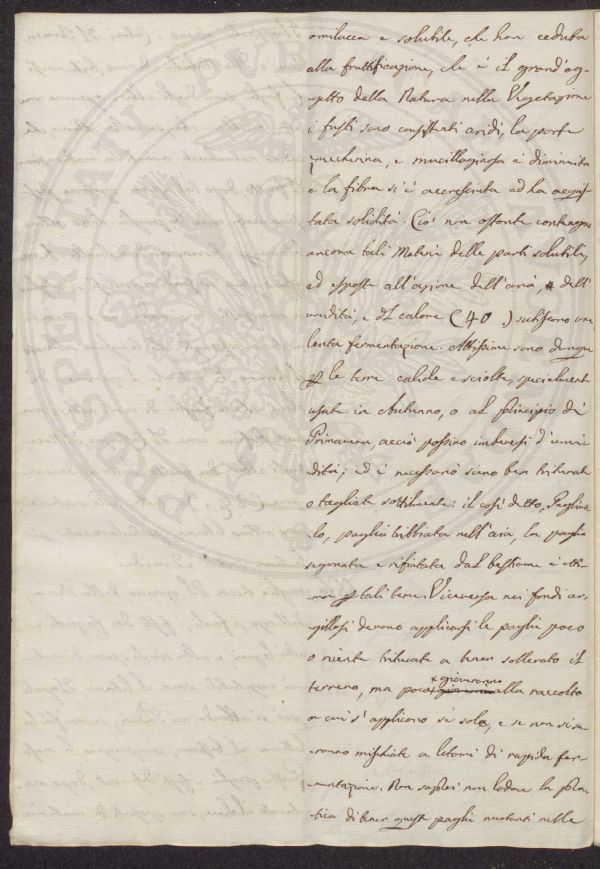 amilacea e solubile, che han ceduta
alla fruttificazione, che è il grand'og-
getto della Natura nella Vegetazione
i fusti sono consistenti aridi, la parte
zuccherina, e mucillaginosa è diminuita
e la fibra si è accresciuta ed ha acquis-
tata solidità. Ciò non ostante contengono
ancora tali Materie delle parti solubili,
ed esposte all'azione dell'aria, dell'
umidità, e del calore (40.) subiscono una
lenta fermentazione. Attissime sono dunque
per le terre calide e sciolte, specialmente
usate in Autunno, o al principio di
Primavera, acciò possino imbeversi d'umi-
dità; ed è necessario siano ben triturate
o tagliate sottilmente: il così detto,
paglia tribbiata nell'aia, la paglia
segonata e rifiutata dal bestiame è otti-
ma per tali terre. Viceversa nei fondi ar-
gillosi devono applicarsi le paglie poco
o niente triturate a tener sollevato il
terreno, ma poco gioveranno alla raccolta
a cui s'applicono se sole, e se non sa-
ranno mischiate a letami di rapida fer-
mentazione. Non saprei non lodare la pra-
tica di tener queste paglie nuotanti nelle